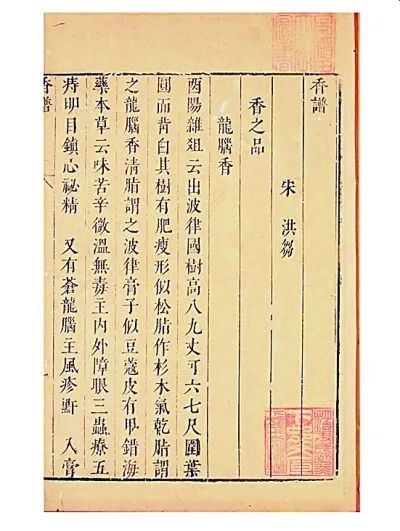 香譜
宋　洪芻
香之品
龍腦香
酉陽雜俎云出波律國樹高八九丈可六七尺圍葉
圓而背白其樹有肥瘦形似松脂作杉木氣乾脂謂
之龍腦香清脂謂之波律膏子似豆蔻皮有甲錯海
藥本草云味苦辛微溫無毒主內外障眼三蟲療五
痔明目鎮心祕精　又有蒼龍腦主風疹䵟　入膏
香譜